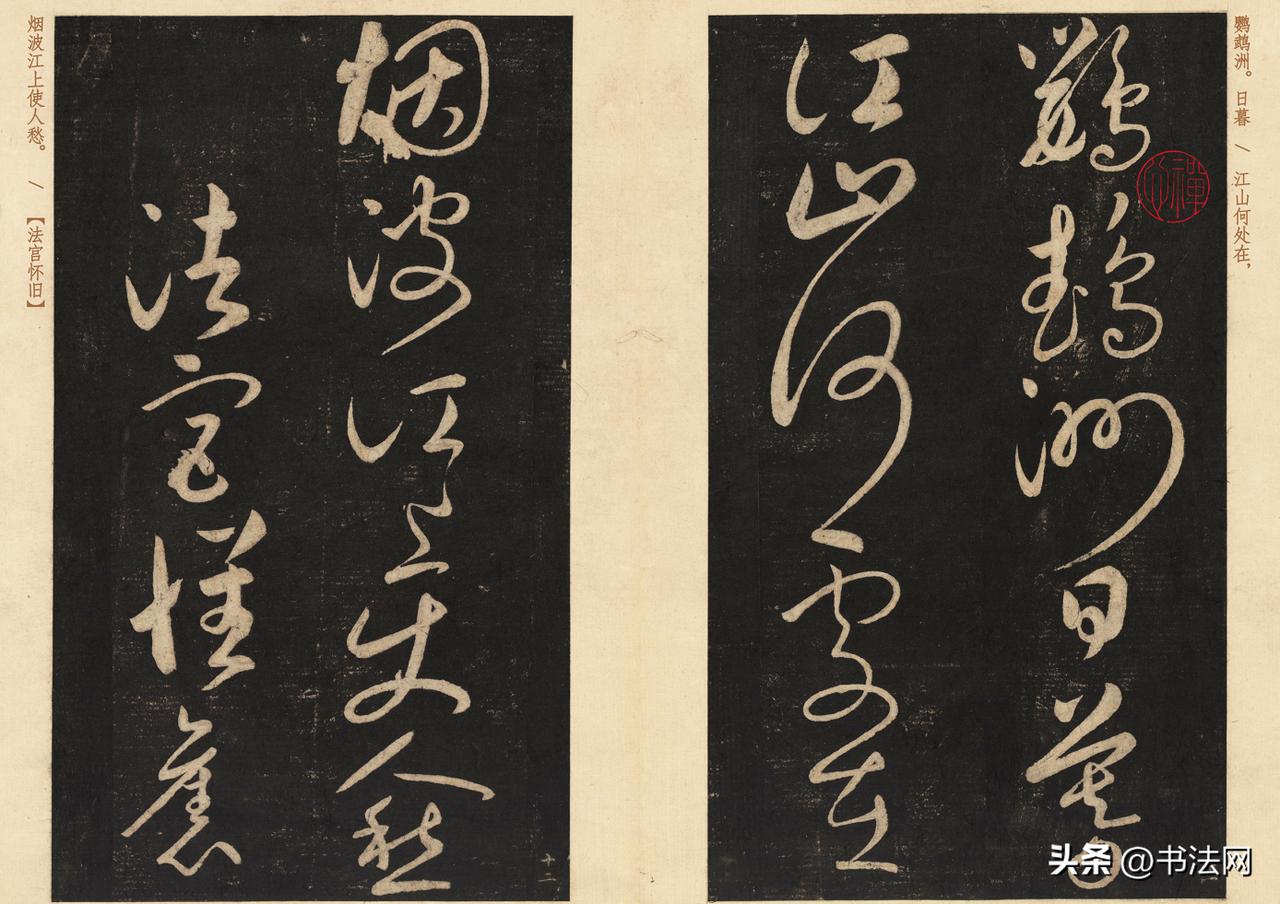 鹦鹉洲。日暮 / 江山何处在，
鸚鵡洲日暮
江山何處在
烟波江上使人愁
十二
法官懷舊
烟波江上使人愁。 / 【法官怀旧】
头条 @书法网